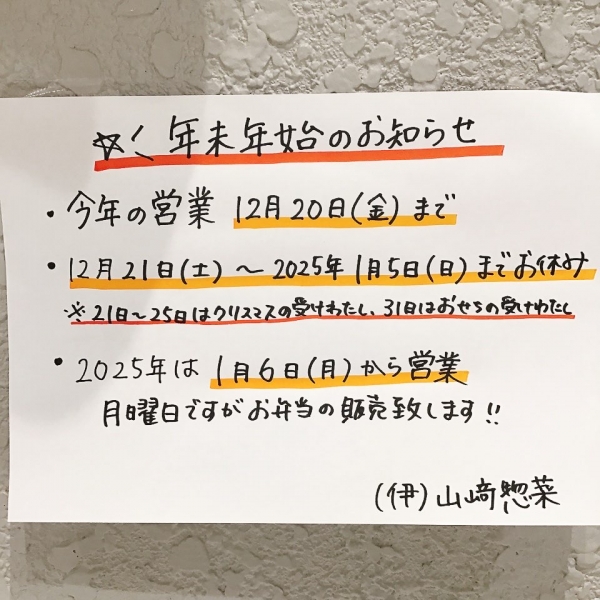 ☆ミ 年末年始のお知らせ
・今年の営業 12月20日(金)まで
・12月21日(土)～2025年1月5日(日)までお休み
※21日～25日はクリスマスの受けわたし、31日はおせちの受けわたし
・2025年は 1月6日(月)から営業
月曜日ですがお弁当の販売致します!!
(伊)山﨑惣菜